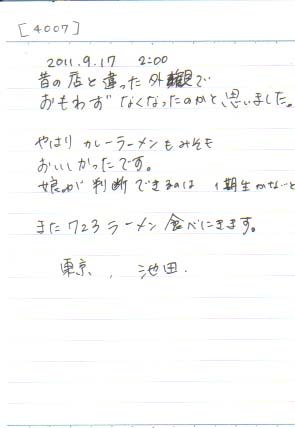 [4007]
2011.9.17 2:00
昔の店と違った外観で
おもわずなくなったのかと思いました。
やはりカレーラーメンもみそも
おいしかったです。
娘が判断できるのは
また723ラーメン食べにきます。
東京、池田.